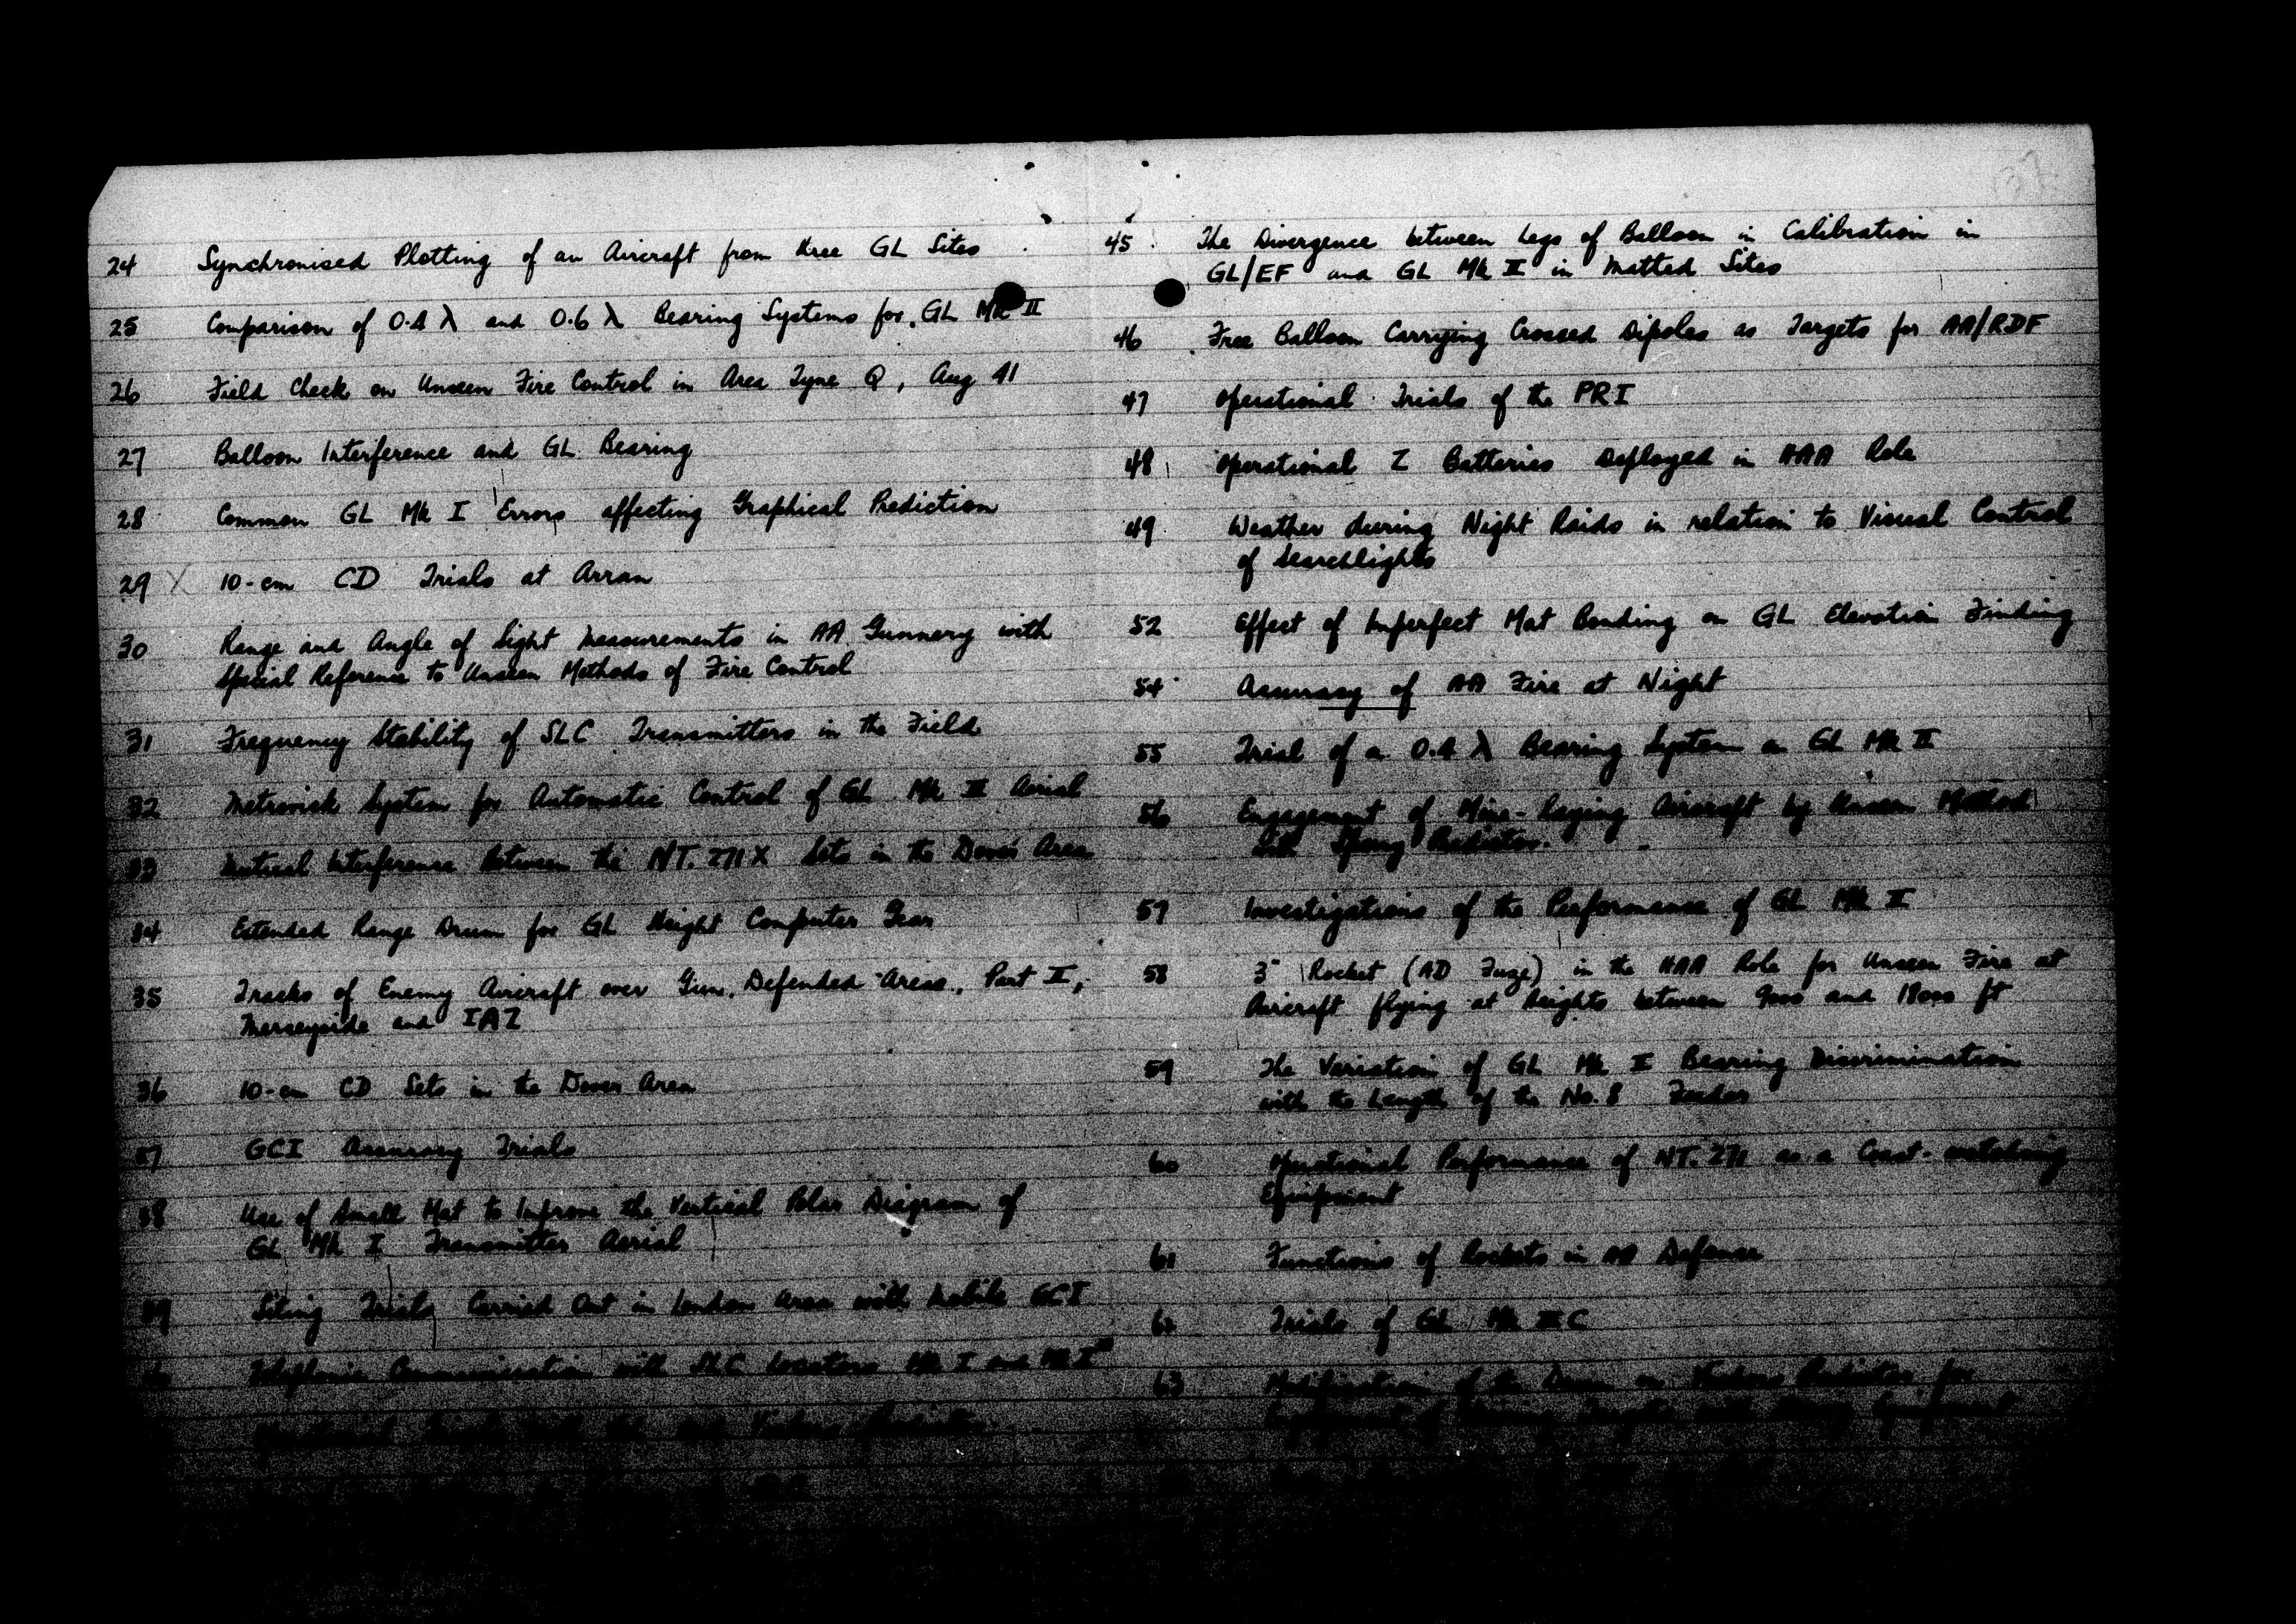 37
24 Synchronised Plotting of an Aircraft from three GL Sites
25 Comparison of 0.4 λ and 0.6 λ Bearing Systems for GL Mk II
26 Field Check on Unseen Fire Control in Area Tyne Q, Aug 41
27 Balloon Interference and GL Bearing
28 Common GL Mk I Errors affecting Graphical Prediction
29 X 10-cm CD Trials at Arran
30 Range and Angle of Sight Measurements in AA Gunnery with
Special Reference to Unseen Methods of Fire Control
31 Frequency Stability of SLC Transmitters in the Field
32 Metrovick System for Automatic Control of GL Mk II Aerial
33 Mutual Interference between the NT. 271X Sets in the Dover Area
34 Extended Range Drum for GL Height Computer Gear
35 Tracks of Enemy Aircraft over Gun Defended Areas, Part II,
Merseyside and IAZ
36 10-cm CD Sets in the Dover Area
37 GCI Accuracy Trials
38 Use of Small Mat to Improve the Vertical Polar Diagram of
GL Mk I Transmitter Aerial
39 Siting Trials Carried Out in London Area with Mobile GCI
Telephonic Communication with SLC Locators Mk I and Mk I
45 The Divergence between Legs of Balloon in Calibration in
GL/EF and GL Mk II in Matted Sites
46 Free Balloon Carrying Crossed Dipoles as Targets for AA/RDF
47 Operational Trials of the PRI
48 Operational Z Batteries Deployed in HAA Role
49 Weather during Night Raids in relation to Visual Control
of Searchlights
52 Effect of Imperfect Mat Bonding on GL Elevation Finding
54 Accuracy of AA Fire at Night
55 Trial of a 0.4 λ Bearing System on GL Mk II
56 Engagement of Mine-Laying Aircraft by Unseen Method
with Predictor.
57 Investigations of the Performance of GL Mk II
58 3" Rocket (AD Fuze) in the HAA Role for Unseen Fire at
Aircraft flying at heights between 9000 and 18000 ft
59 The Variation of GL Mk II Bearing Discrimination
with the Length of the No. 8 Feeder
60 Operational Performance of NT. 271 as a Coast-watching
Equipment
61 Functions of Rockets in AA Defence
62 Trials of GL Mk III C
63 Modification of the Drum on Vickers Predictor for
Engagement of